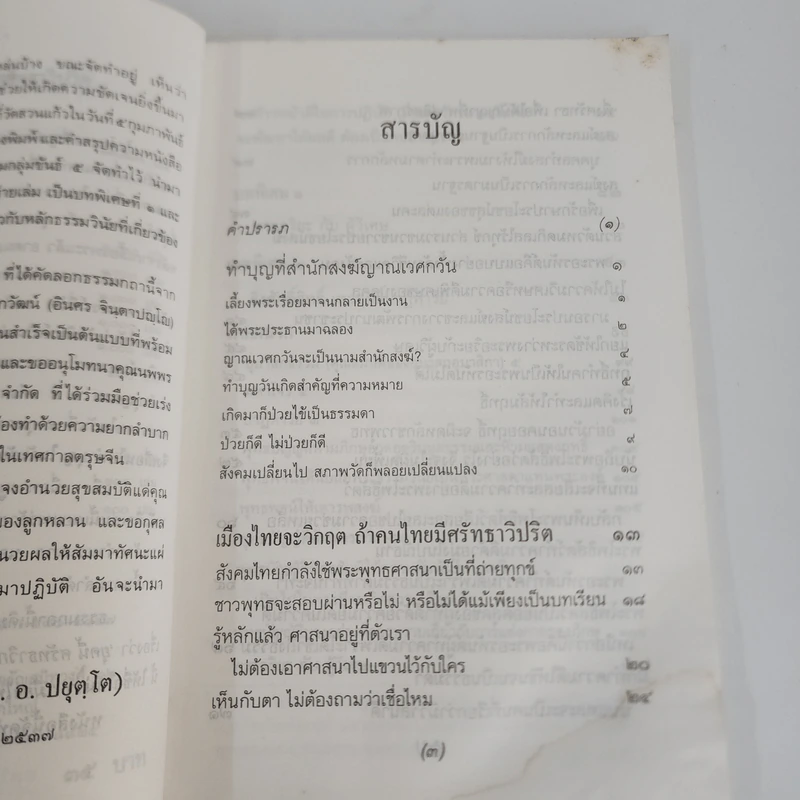 ลุ่มบ้าง ขณะจัดทำอยู่ เห็นว่า
ช่วยให้เกิดความชัดเจนยิ่งขึ้นมา
วัดสวนแก้วในวันที่ ๕ กุมภาพันธ์
งพิมพ์และคำสรุปความหนังสือ
มกลุ่มขันธ์ ๕ จัดทำไว้ นำมา
ายเล่ม เป็นบทพิเศษที่ ๑ และ
วกับหลักธรรมวินัยที่เกี่ยวข้อง
ที่ได้คัดลอกธรรมกถานี้จาก
กวัฒน์ (อินศร จินฺตาปญฺโญ)
นสำเร็จเป็นต้นแบบที่พร้อม
และขออนุโมทนาคุณนพพร
จำกัด ที่ได้ร่วมมือช่วยเร่ง
ต้องทำด้วยความยากลำบาก
ในเทศกาลตรุษจีน
จงอำนวยสุขสมบัติแด่คุณ
ของลูกหลาน และขอกุศล
นวยผลให้สัมมาทัศนะแผ่
มาปฏิบัติ อันจะนำมา
. อ. ปยุตฺโต)
๒๕๓๗
สารบัญ
คำปรารภ (๑)
ทำบุญที่สำนักสงฆ์ญาณเวศกวัน ๑
เลี้ยงพระเรื่อยมาจนกลายเป็นงาน ๑
ได้พระประธานมาฉลอง ๒
ญาณเวศกวันจะเป็นนามสำนักสงฆ์? ๔
ทำบุญวันเกิดสำคัญที่ความหมาย ๕
เกิดมาก็ป่วยไข้เป็นธรรมดา ๗
ป่วยก็ดี ไม่ป่วยก็ดี ๙
สังคมเปลี่ยนไป สภาพวัดก็พลอยเปลี่ยนแปลง ๑๐
เมืองไทยจะวิกฤต ถ้าคนไทยมีศรัทธาวิปริต ๑๓
สังคมไทยกำลังใช้พระพุทธศาสนาเป็นที่ถ่ายทุกข์ ๑๓
ชาวพุทธจะสอบผ่านหรือไม่ หรือไม่ได้แม้เพียงเป็นบทเรียน ๑๘
รู้หลักแล้ว ศาสนาอยู่ที่ตัวเรา
ไม่ต้องเอาศาสนาไปแขวนไว้กับใคร ๒๐
เห็นกับตา ไม่ต้องถามว่าเชื่อไหม ๒๔
(๓)